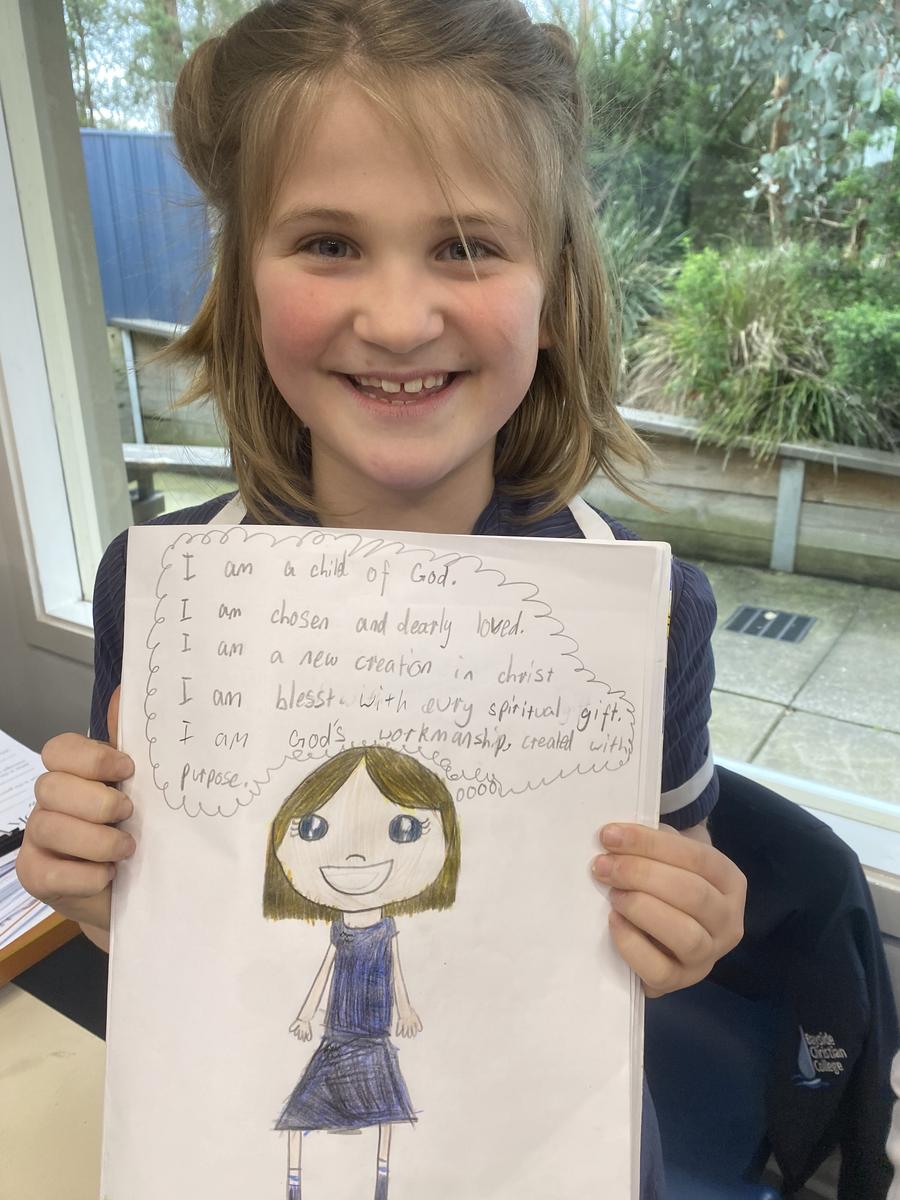 I am a child of God.
I am chosen and dearly loved.
I am a new creation in christ
I am blesst with evry spiritual gift.
I am God's workmanship, created with
purpose.
Bayside
Christian
College